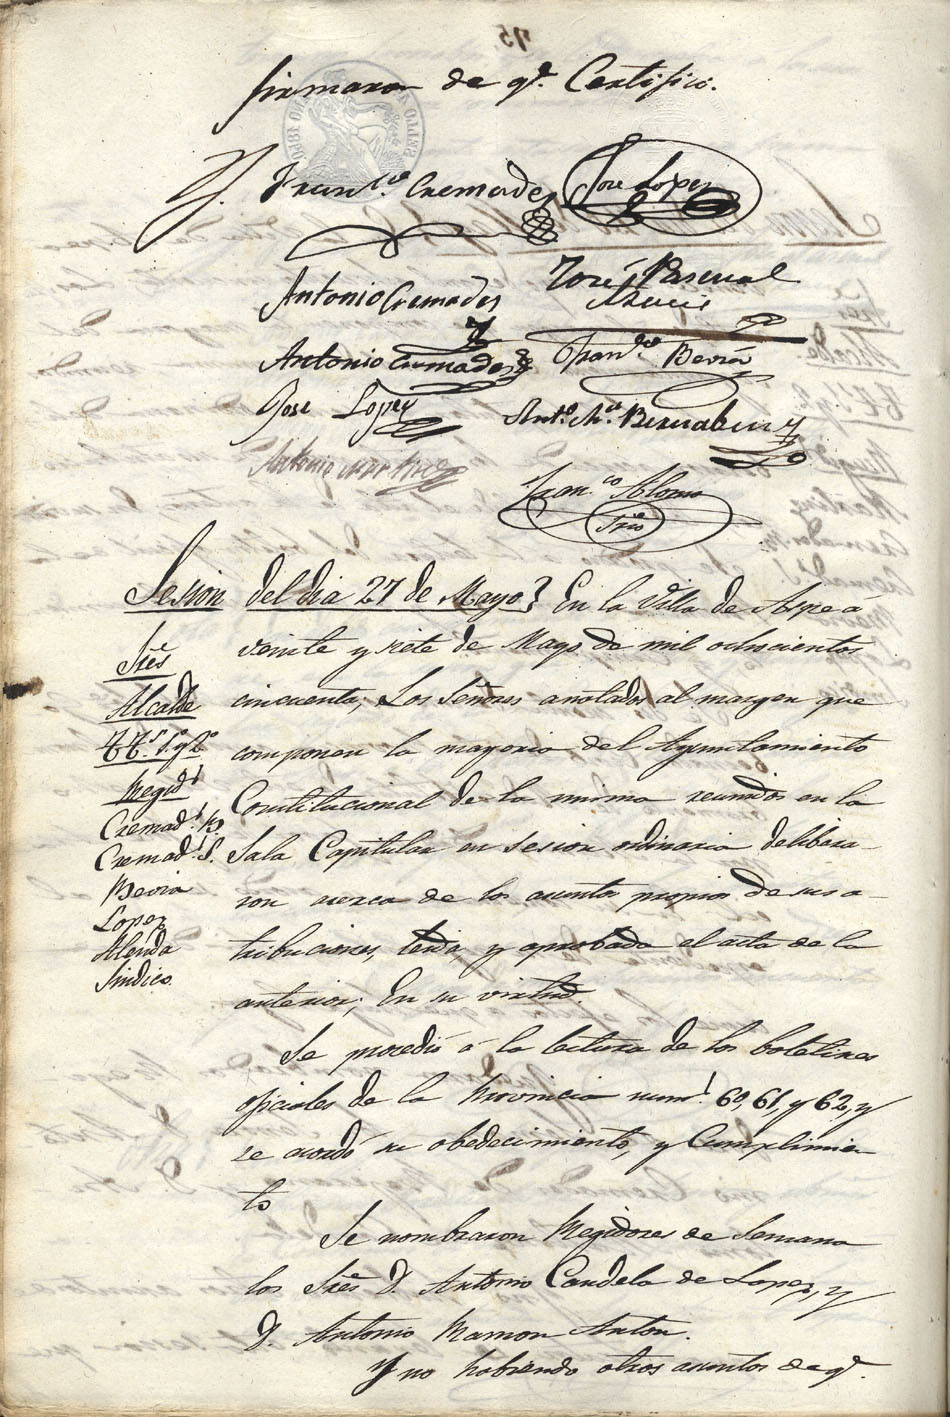 firmaron de qe. Certifico.
Franco. Cremades
Jose Lopez
Antonio Cremades
José Pascual
Antonio Cremades
Franco. Bevia
Jose Lopez
Anto. Ma. Bernabeu
Antonio Martinez
Franco. Alonso
Srio
Sesion del dia 27 de Mayo } En la Villa de Aspe á
veinte y siete de Mayo de mil ochocientos
cincuenta, Los Señores anotados al margen que
componen la mayoria del Ayuntamiento
Constitucional de la misma reunidos en la
Sala Capitular en sesion ordinaria delibera-
ron acerca de los asuntos propios de sus a-
tribuciones, leida y aprobada el acta de la
anterior; En su virtud.
Sres
Alcalde
TTs. 1o. y 2o
Regids
Cremads. B.
Cremads. S.
Bevia
Lopez
Alenda
Sindico.
Se procedió á la lectura de los boletines
oficiales de la Provincia nums. 60, 61, y 62, y
se acordó su obedecimiento, y Cumplimien-
to
Se nombraron Regidores de Semana
los Sres D. Antonio Candela de Lopez, y
D. Antonio Ramon Anton.
Y no habiendo otros asuntos de qe.